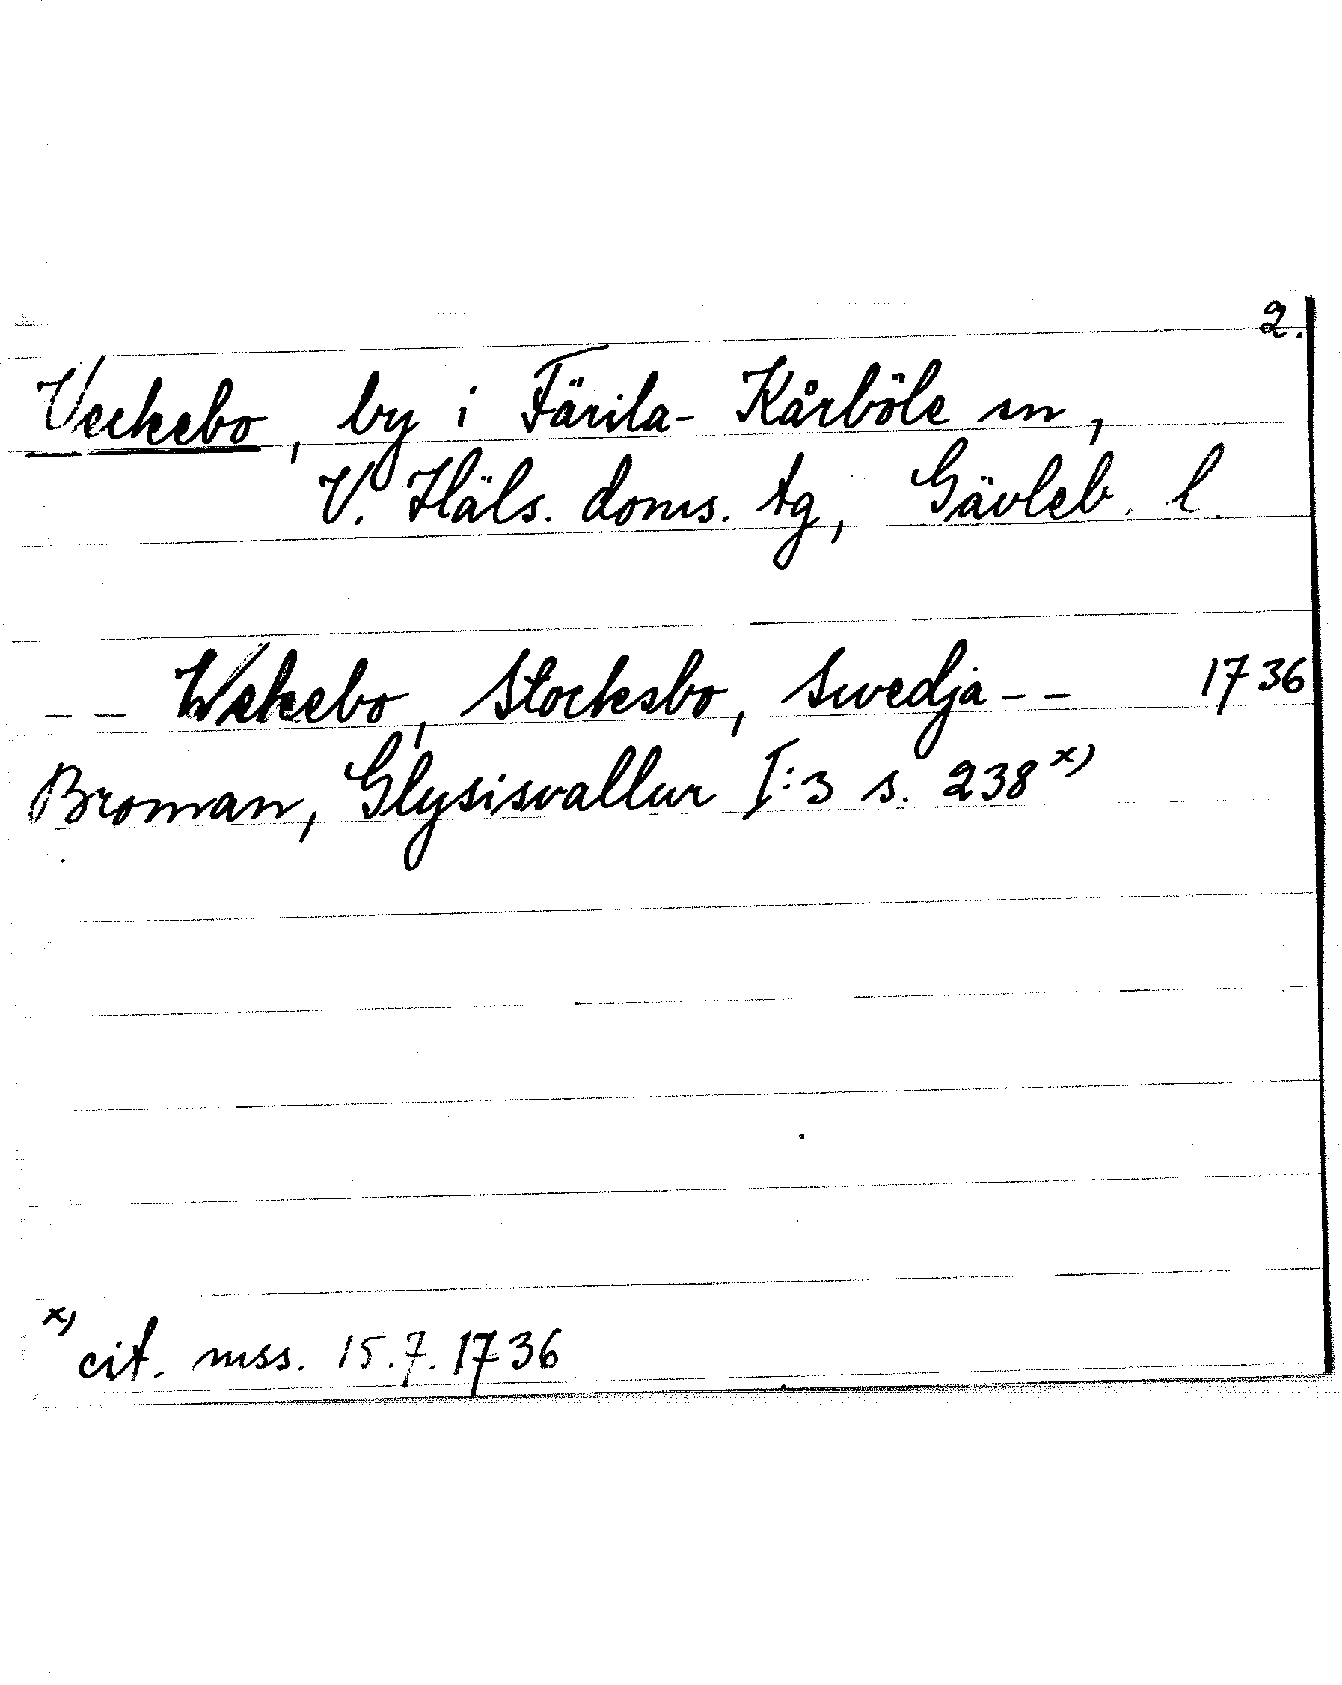 2.
Veckebo, by i Färila-Kårböle sn,
V. Häls. doms. tg, Gävleb. l.
-- Wekebo, Stocksbo, Swedja -- 1736
Broman, Glysisvallur I:3 s. 238 x)
x) cit. mss. 15.7.1736